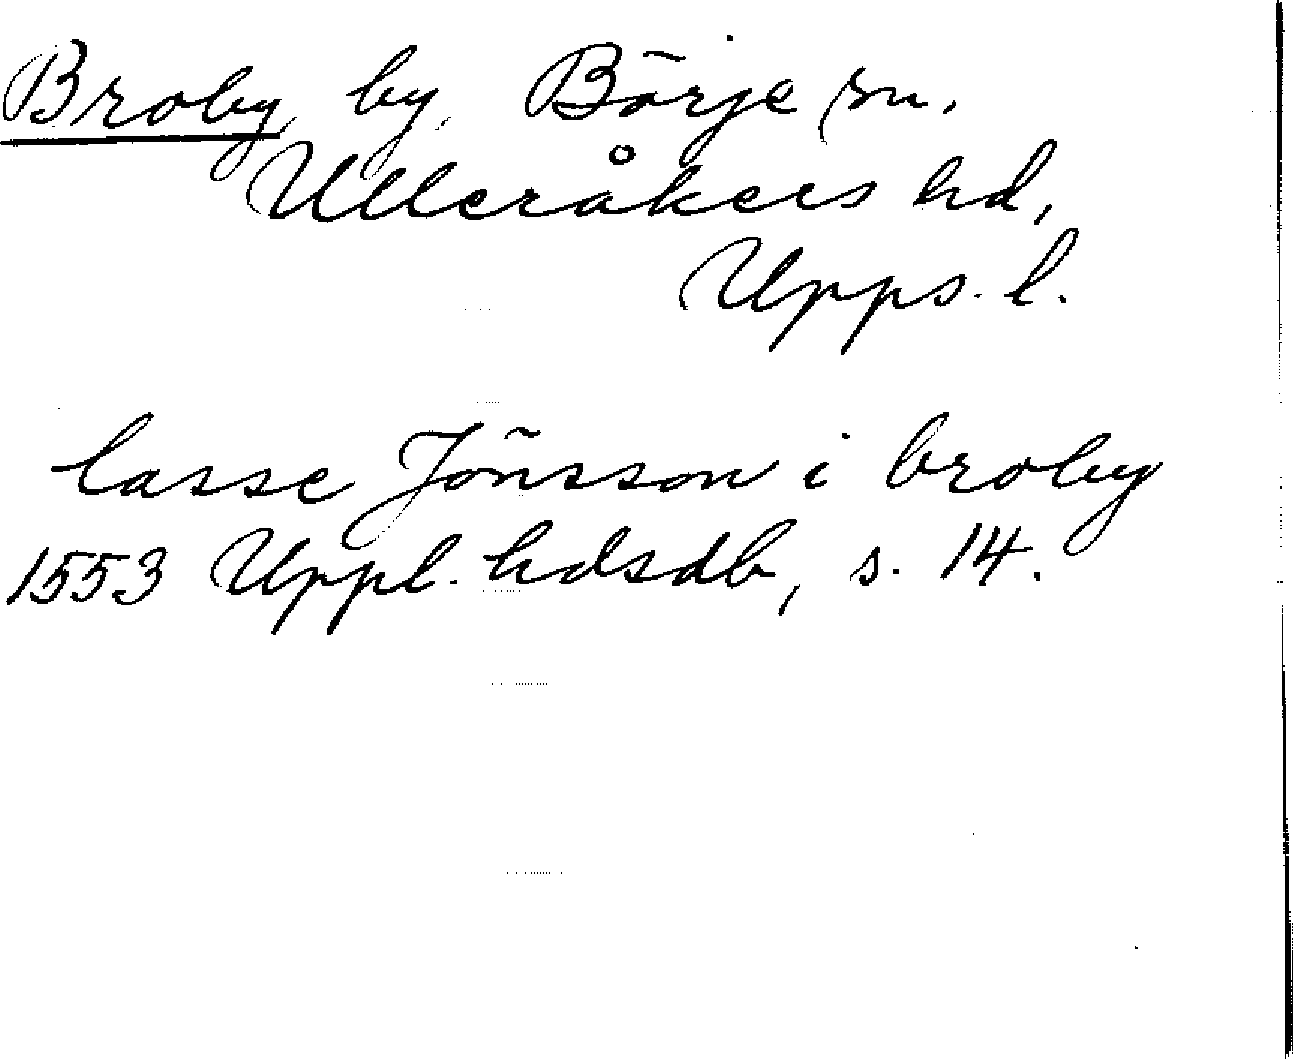 Broby, by, Börje sn.
Ulleråkers hd,
Upps. l.
lasse Jönsson i broby
1553 Uppl. hdsdb, s. 14.